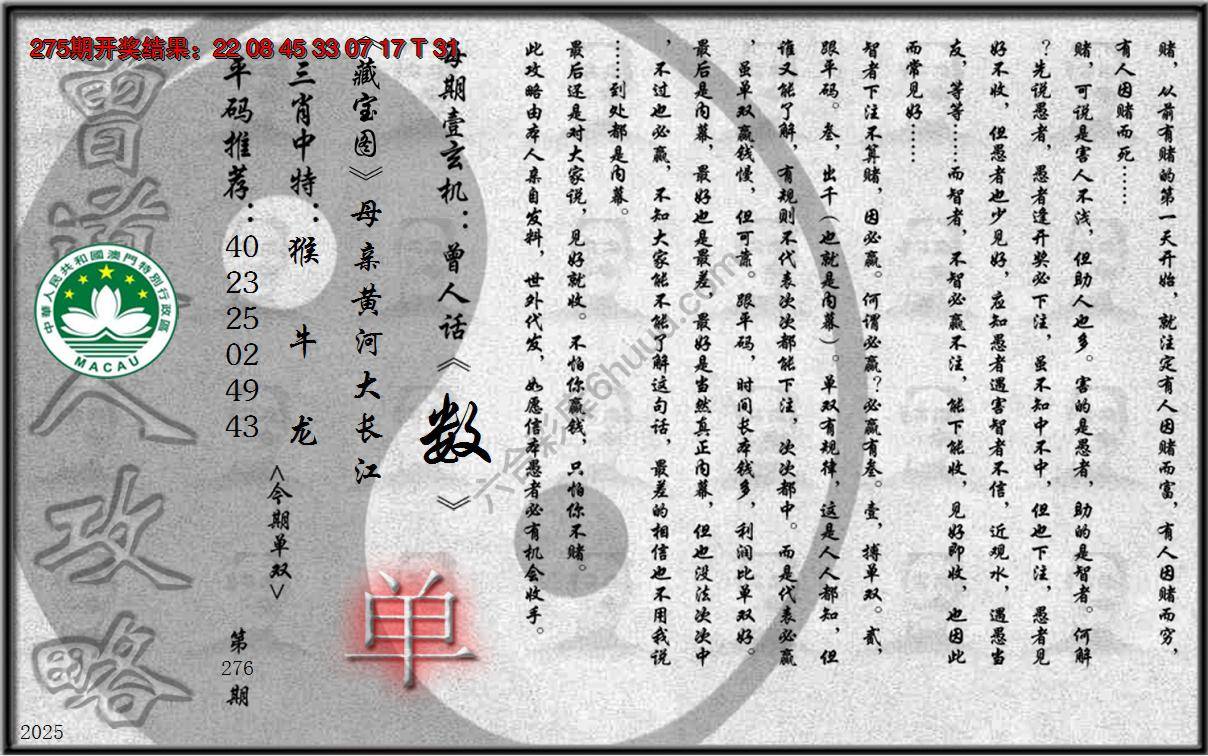 275期开奖结果：22 08 45 33 07 17 T 31
赌，从前有赌的第一天开始，就注定有人因赌而富，有人因赌而穷，
有人因赌而死……
赌，可说是害人不浅，但助人也多。害的是愚者，助的是智者。何解
？先说愚者，愚者逢开奖必下注，虽不知中不中，但也下注，愚者见
好不收，但愚者也少见好，应知愚者遇害智者不信，近观水，遇愚当
友，等等……而智者，不智必赢不注，能下能收，见好即收，也因此
而常见好……
智者下注不算赌，因必赢。何谓必赢？必赢有叁。壹，搏单双。贰，
跟平码。叁，出千（也就是内幕）。单双有规律，这是人人都知，但
谁又能了解，有规则不代表次次都能下注，次次都中。而是代表必赢
，虽单双赢钱慢，但可靠。跟平码，时间长本钱多，利润比单双好。
最后是内幕，最好也是最差，最好是当然真正内幕，但也没法次次中
，不过也必赢，不知大家能不能了解这句话，最差的相信也不用我说
……到处都是内幕。
最后还是对大家说，见好就收。不怕你赢钱，只怕你不赌。
此攻略由本人亲自发料，世外代发，如愿信本愚者必有机会收手。
每期壹玄机：曾人话《数》
《藏宝图》母亲黄河大长江
单
三肖中特：猴 牛 龙
<今期单双>
平码推荐：
40
23
25
02
49
43
第
276
期
曾道人攻略
中華人民共和國澳門特別行政區
MACAU
2025